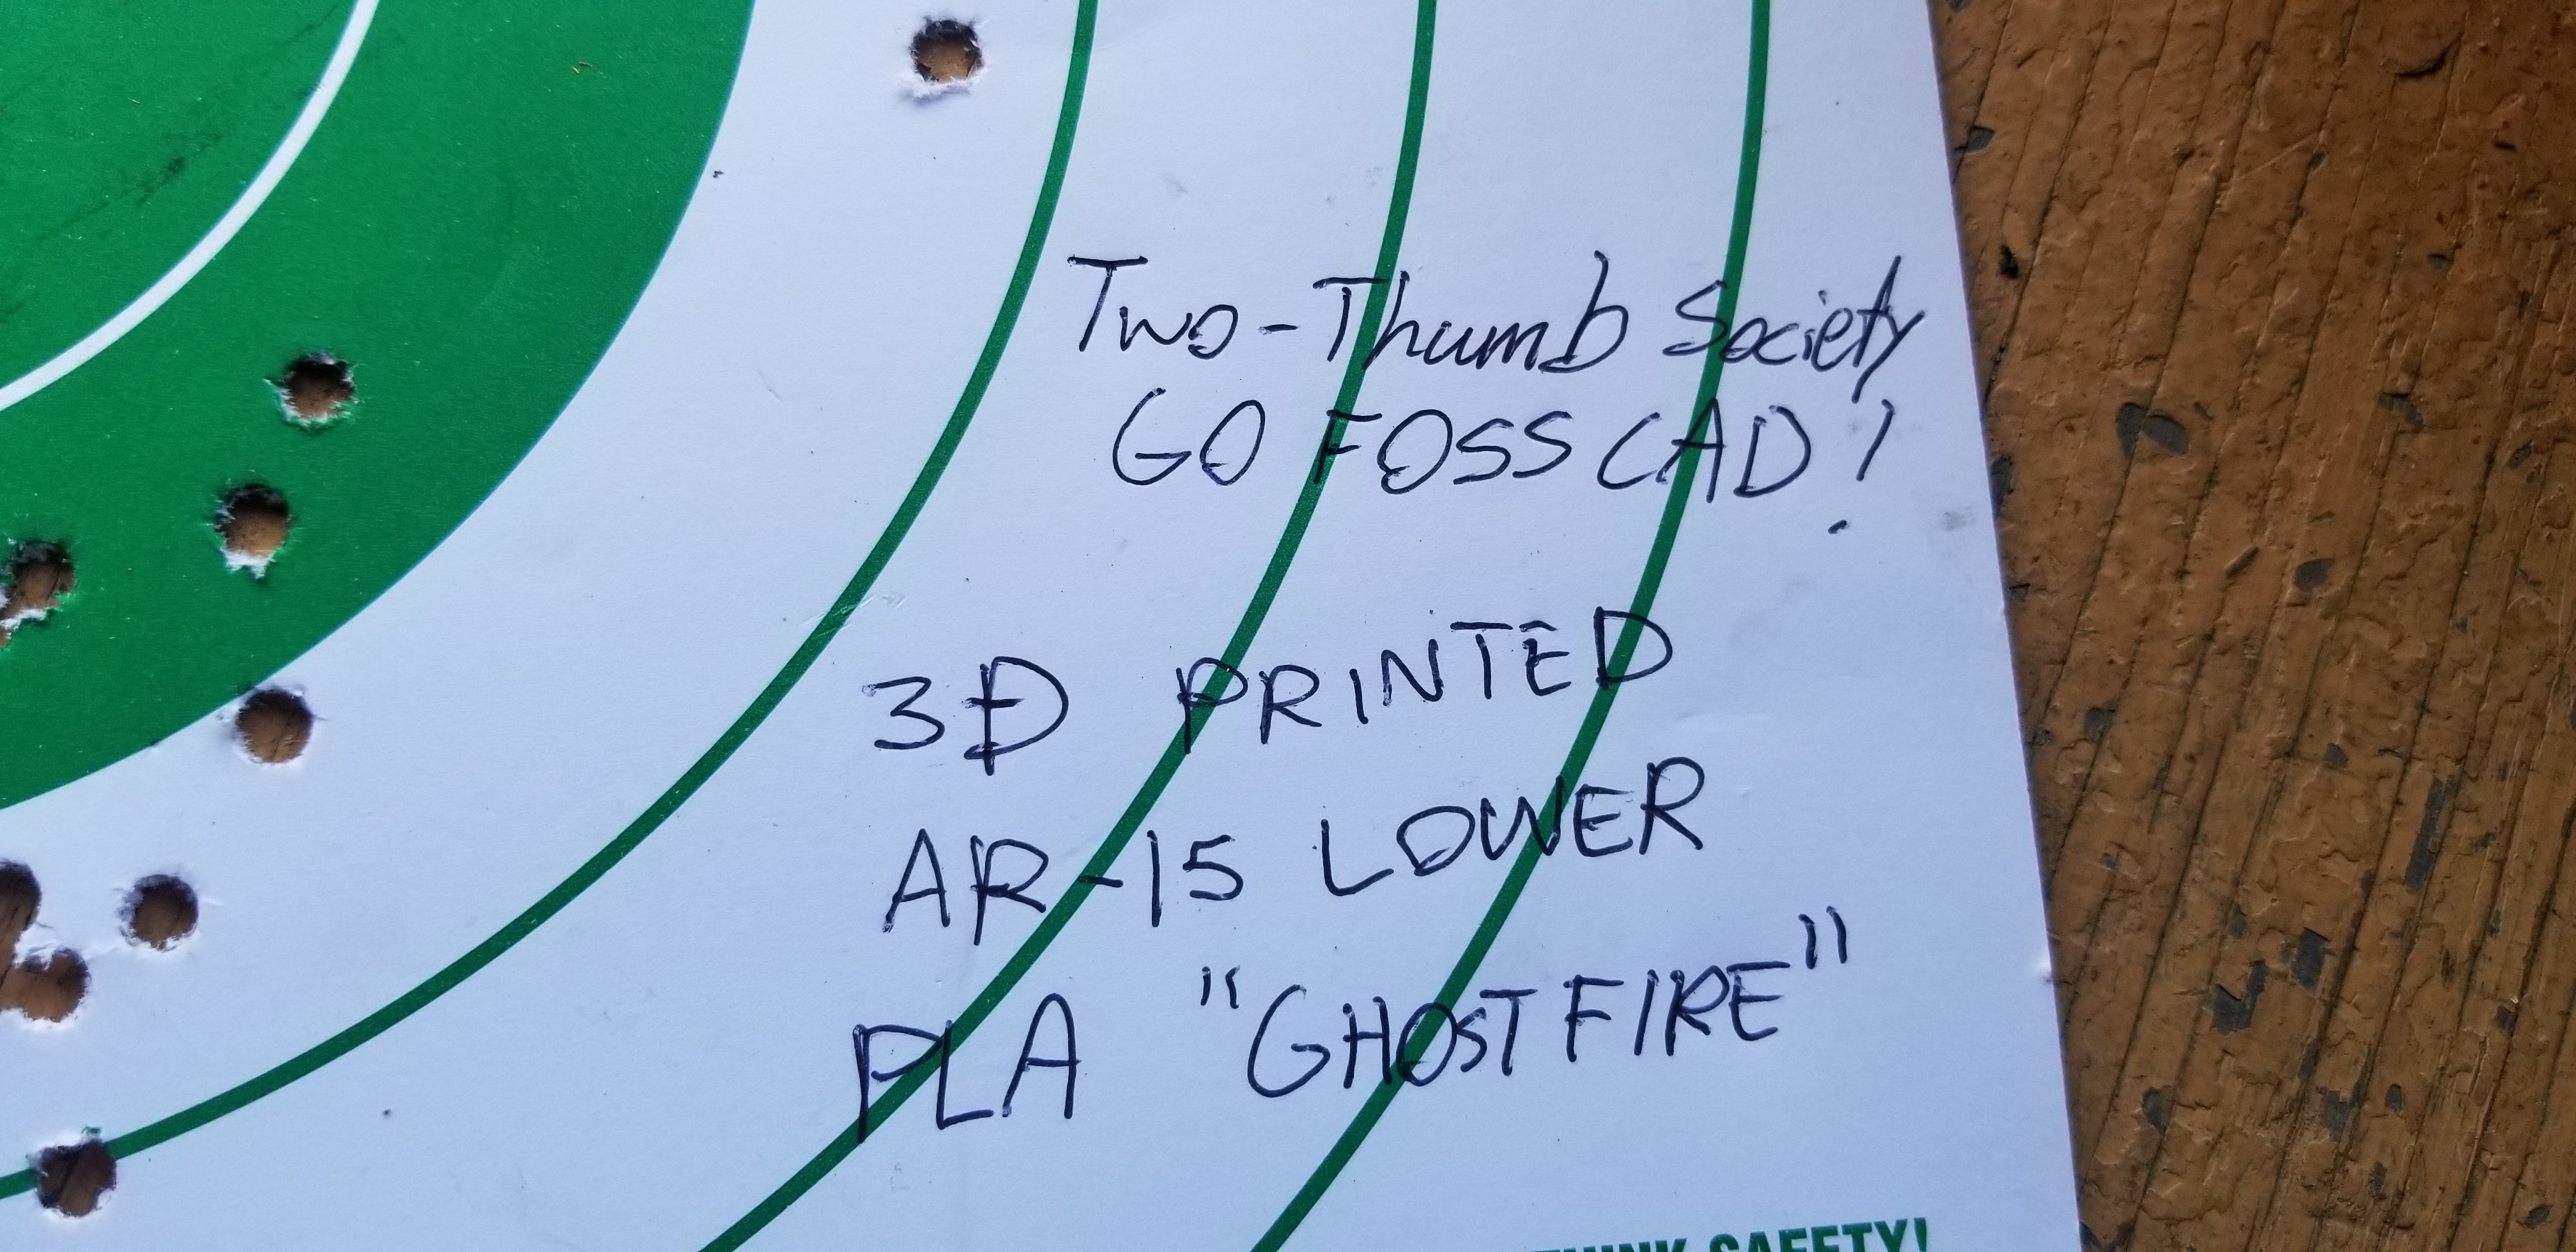 Two-Thumb Society
GO FOSSCAD!
3D PRINTED
AR-15 LOWER
PLA "GHOSTFIRE"
THINK SAFETY!